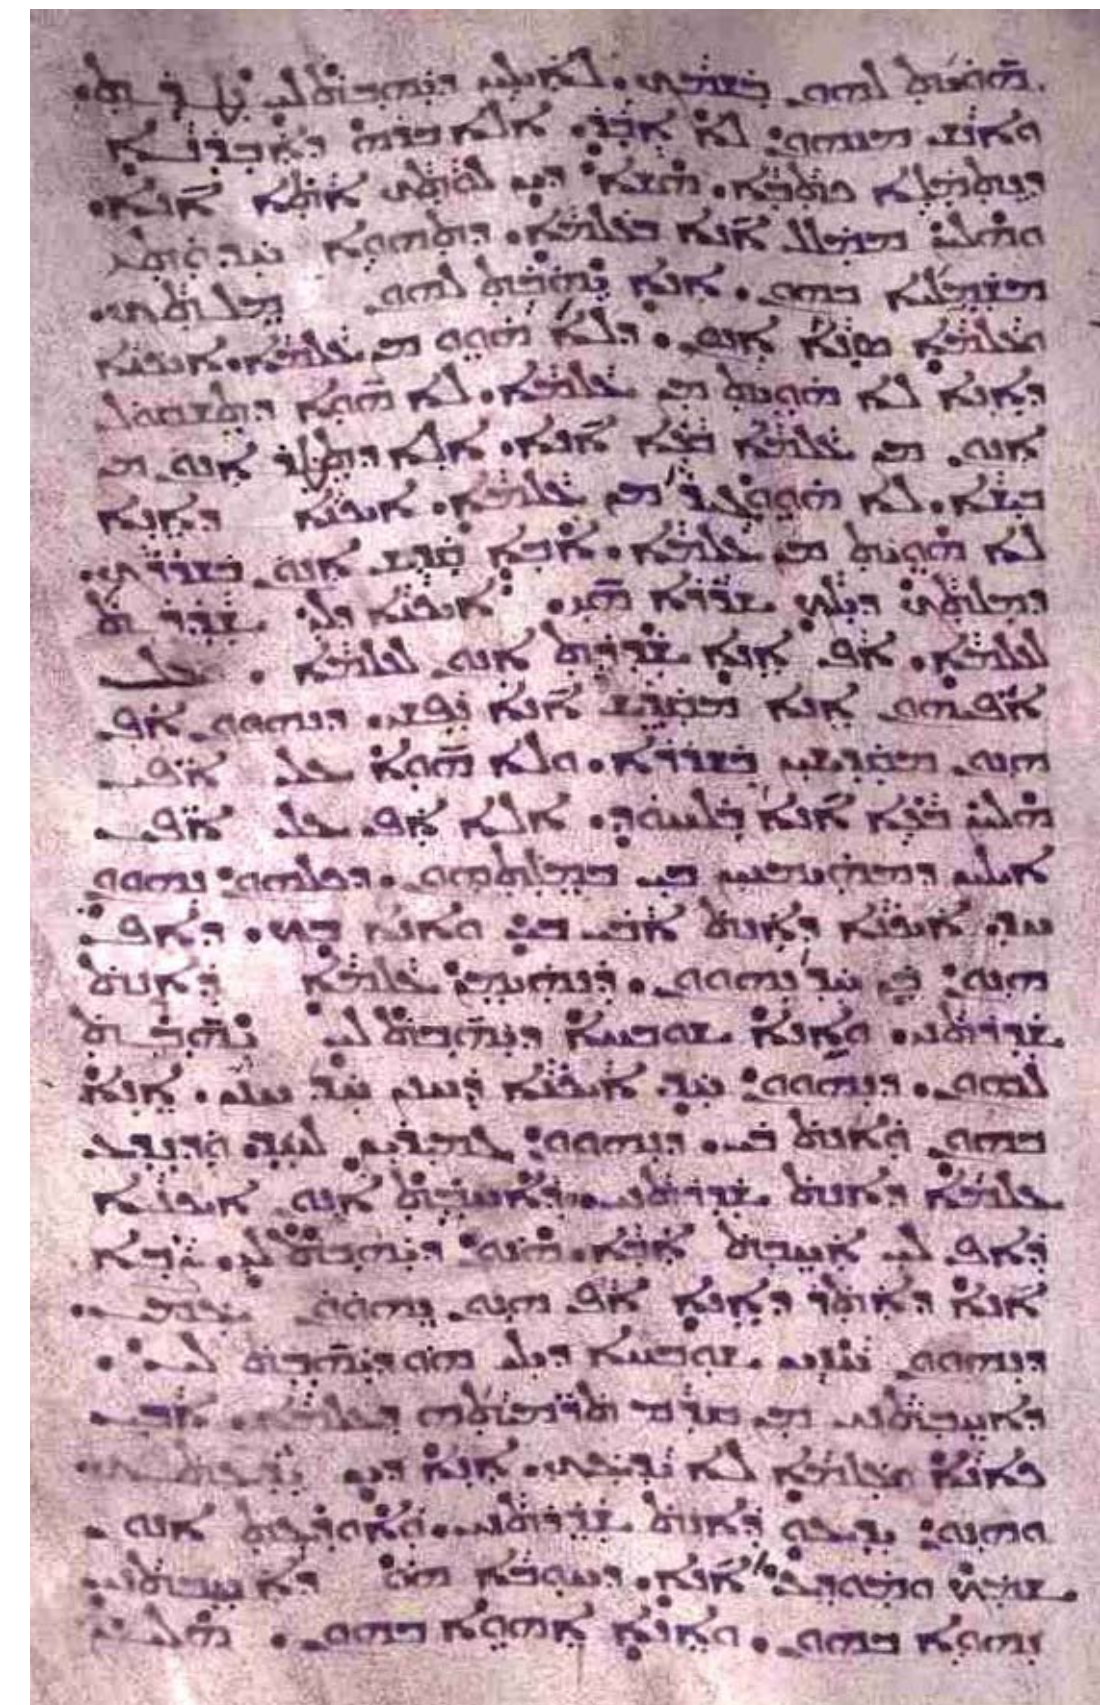 ܗܘܝܬ ܠܗܘܢ ܒܫܡܟ. ܠܐܝܠܝܢ ܕܝܗܒܬ ܠܝ ܢܛܪܬ.
ܘܐܢܫ ܡܢܗܘܢ ܠܐ ܐܒܕ. ܐܠܐ ܒܪܗ ܕܐܒܕܢܐ
ܕܢܬܡܠܐ ܟܬܒܐ. ܗܫܐ ܕܝܢ ܠܘܬܟ ܐܬܐ ܐܢܐ.
ܘܗܠܝܢ ܡܡܠܠ ܐܢܐ ܒܥܠܡܐ. ܕܬܗܘܐ ܚܕܘܬܝ
ܡܫܡܠܝܐ ܒܗܘܢ. ܐܢܐ ܝܗܒܬ ܠܗܘܢ ܡܠܬܟ.
ܘܥܠܡܐ ܣܢܐ ܐܢܘܢ. ܕܠܐ ܗܘܘ ܡܢ ܥܠܡܐ. ܐܝܟܢܐ
ܕܐܢܐ ܠܐ ܗܘܝܬ ܡܢ ܥܠܡܐ. ܠܐ ܗܘܐ ܕܬܫܩܘܠ
ܐܢܘܢ ܡܢ ܥܠܡܐ ܒܥܐ ܐܢܐ. ܐܠܐ ܕܬܛܪ ܐܢܘܢ ܡܢ
ܒܝܫܐ. ܠܐ ܗܘܘ ܓܝܪ ܡܢ ܥܠܡܐ. ܐܝܟܢܐ ܕܐܢܐ
ܠܐ ܗܘܝܬ ܡܢ ܥܠܡܐ. ܐܒܐ ܩܕܫ ܐܢܘܢ ܒܫܪܪܟ.
ܕܡܠܬܟ ܕܝܠܟ ܫܪܪܐ ܗܝ. ܐܝܟܢܐ ܕܠܝ ܫܕܪܬ
ܠܥܠܡܐ. ܐܦ ܐܢܐ ܫܕܪܬ ܐܢܘܢ ܠܥܠܡܐ. ܘܥܠ
ܐܦܝܗܘܢ ܐܢܐ ܡܩܕܫ ܐܢܐ ܢܦܫܝ. ܕܢܗܘܘܢ ܐܦ
ܗܢܘܢ ܡܩܕܫܝܢ ܒܫܪܪܐ. ܘܠܐ ܗܘܐ ܥܠ ܐܦܝ
ܗܠܝܢ ܒܥܐ ܐܢܐ ܒܠܚܘܕ. ܐܠܐ ܐܦ ܥܠ ܐܦܝ
ܐܝܠܝܢ ܕܡܗܝܡܢܝܢ ܒܝ ܒܡܠܬܗܘܢ. ܕܟܠܗܘܢ ܢܗܘܘܢ
ܚܕ. ܐܝܟܢܐ ܕܐܢܬ ܐܒܝ ܒܝ ܘܐܢܐ ܒܟ. ܕܐܦ
ܗܢܘܢ ܒܢ ܚܕ ܢܗܘܘܢ. ܕܢܗܝܡܢ ܥܠܡܐ ܕܐܢܬ
ܫܕܪܬܢܝ. ܘܐܢܐ ܫܘܒܚܐ ܕܝܗܒܬ ܠܝ ܝܗܒܬ
ܠܗܘܢ. ܕܢܗܘܘܢ ܚܕ ܐܝܟܢܐ ܕܚܢܢ ܚܕ ܚܢܢ. ܐܢܐ
ܒܗܘܢ ܘܐܢܬ ܒܝ. ܕܢܗܘܘܢ ܓܡܝܪܝܢ ܠܚܕ. ܘܕܢܕܥ
ܥܠܡܐ ܕܐܢܬ ܫܕܪܬܢܝ. ܘܕܐܚܒܬ ܐܢܘܢ ܐܝܟܢܐ
ܕܐܦ ܠܝ ܐܚܒܬ. ܐܒܐ. ܗܢܘܢ ܕܝܗܒܬ ܠܝ. ܨܒܐ
ܐܢܐ ܕܐܬܪ ܕܐܢܐ ܐܦ ܗܢܘܢ ܢܗܘܘܢ ܥܡܝ.
ܕܢܗܘܘܢ ܚܙܝܢ ܫܘܒܚܐ ܕܝܠܝ ܗܘ ܕܝܗܒܬ ܠܝ.
ܕܐܚܒܬܢܝ ܡܢ ܩܕܡ ܬܪܡܝܬܗ ܕܥܠܡܐ. ܐܒܝ
ܟܐܢܐ ܘܥܠܡܐ ܠܐ ܝܕܥܟ. ܐܢܐ ܕܝܢ ܝܕܥܬܟ.
ܘܗܢܘܢ ܝܕܥܘ ܕܐܢܬ ܫܕܪܬܢܝ. ܘܐܘܕܥܬ ܐܢܘܢ
ܫܡܟ ܘܡܘܕܥ ܐܢܐ. ܕܚܘܒܐ ܗܘ ܕܐܚܒܬܢܝ
ܢܗܘܐ ܒܗܘܢ. ܘܐܢܐ ܐܗܘܐ ܒܗܘܢ. ܗܠܝܢ